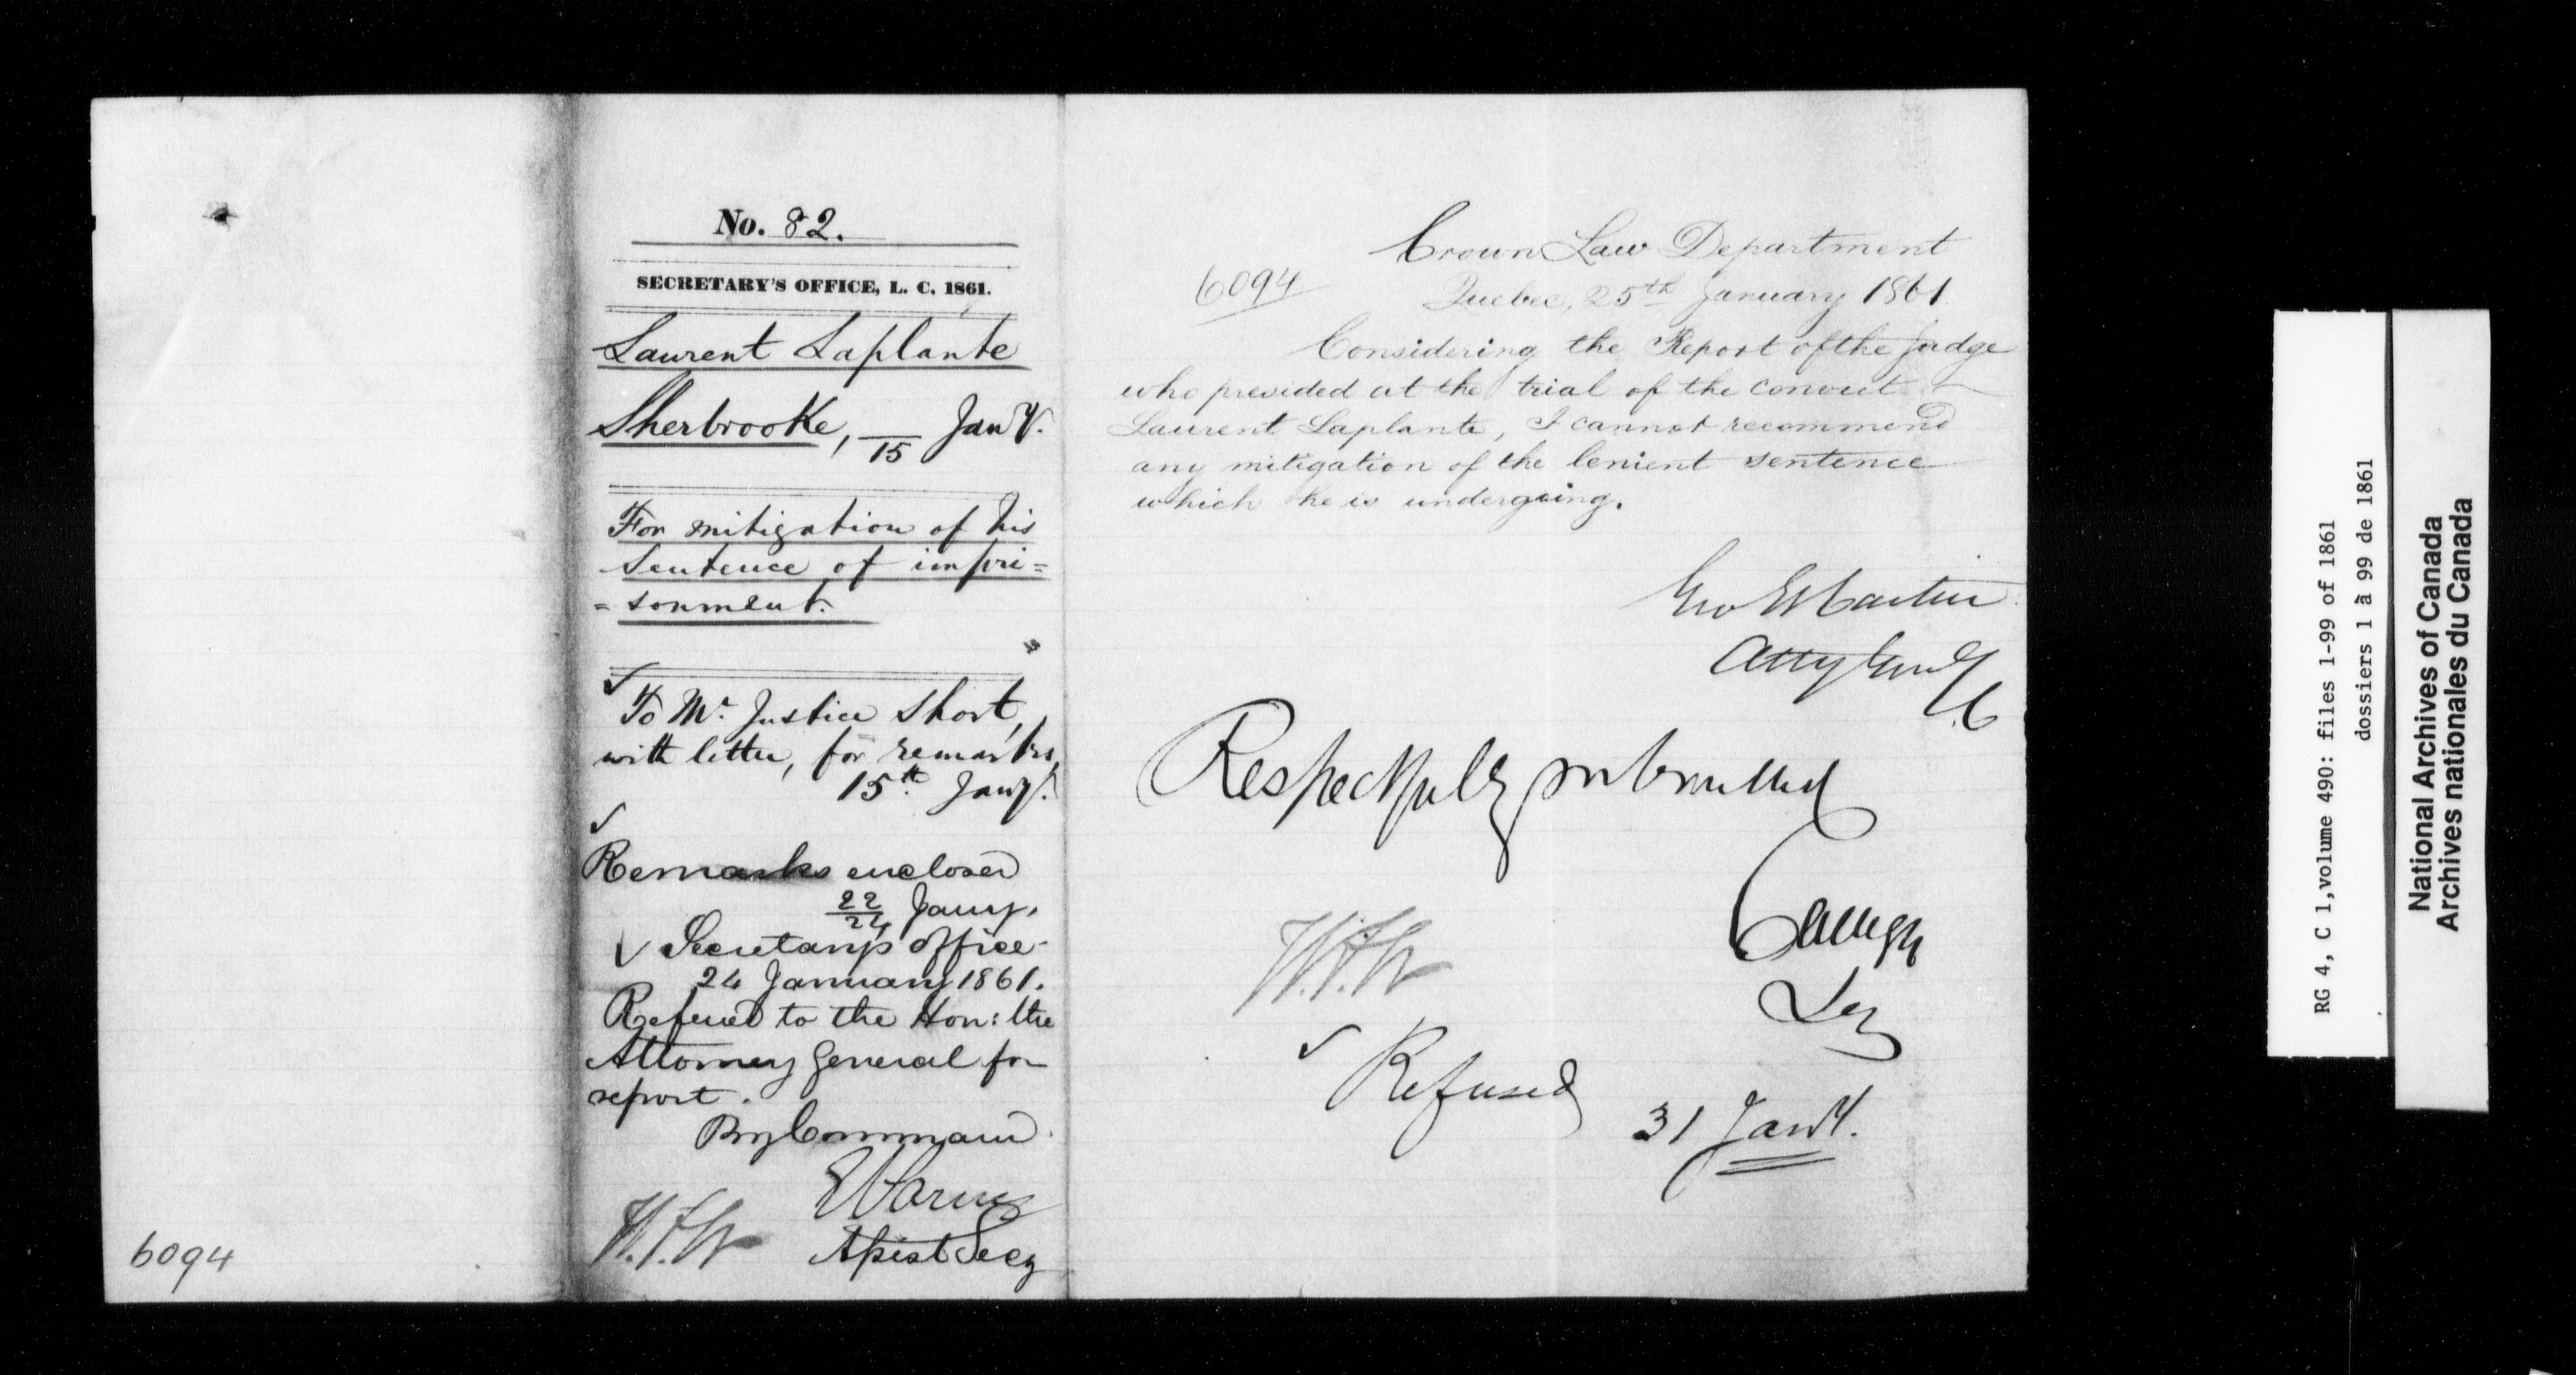 6094
No. 82.
SECRETARY'S OFFICE, L. C. 1861.
Laurent Laplante
Sherbrooke, 15 Jany.
For mitigation of his
Sentence of impri=
=sonment.
To Mr. Justice Short,
with letter, for remarks,
15th. Jany.
Remarks enclosed
22/24 Jany.
Secretary's office
24 January 1861.
Referred to the Hon: the
Attorney General for
report.
By Command.
Assist Secy
6094
Crown Law Department
Quebec, 25th January 1861.
Considering the Report of the Judge
who presided at the trial of the convict
Laurent Laplante, I cannot recommend
any mitigation of the lenient sentence
which he is undergoing.
Geo E Cartier
Atty Genl
L.C
Respectfully submitted
Refused
31 Jany.
RG 4, C 1, volume 490: files 1-99 of 1861
dossiers 1 à 99 de 1861
National Archives of Canada
Archives nationales du Canada